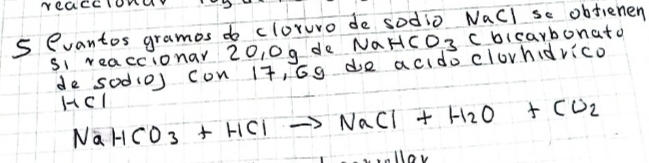 reaccionar
5 Cuantos gramos de cloruro de sodio NaCl se obtienen
si reaccionar 20,0g de NaHCO3 (bicarbonato
de sodio) con 17,6g de acido clorhidrico
HCl
NaHCO3 + HCl → NaCl + H2O + CO2